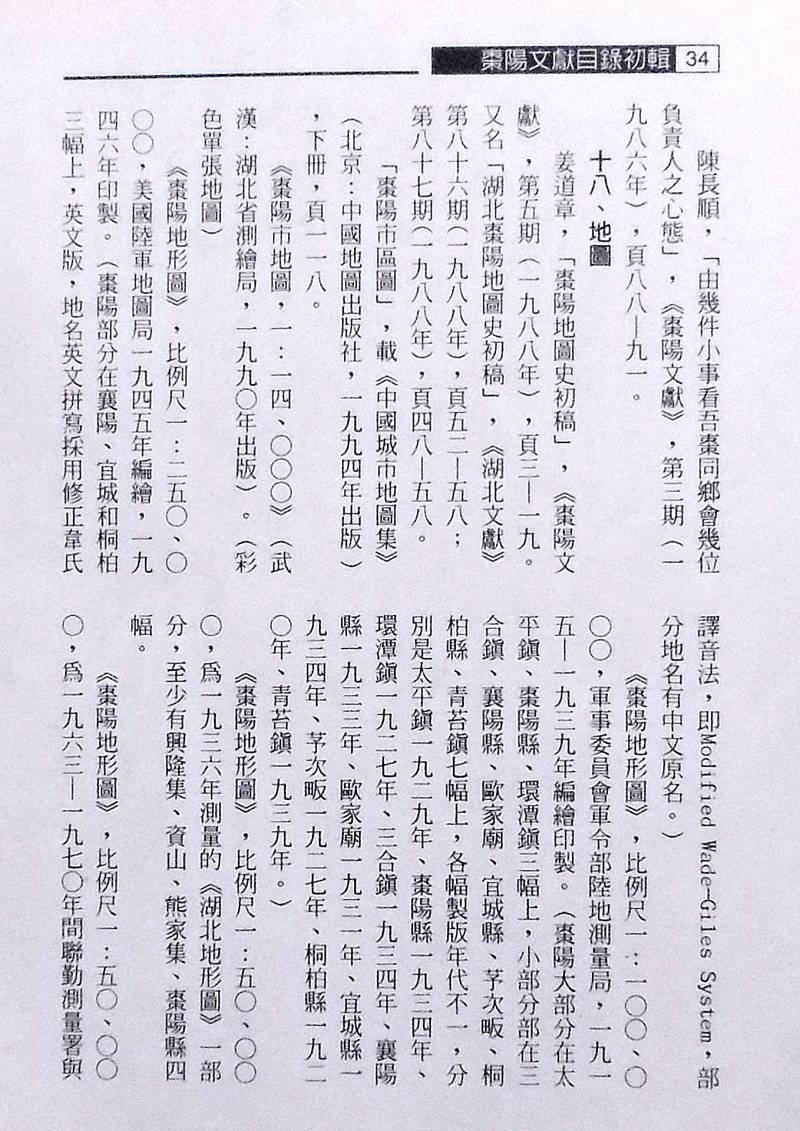 棗陽文獻目錄初輯 34
陳長順，「由幾件小事看吾棗同鄉會幾位
負責人之心態」，《棗陽文獻》，第三期（一
九八六年），頁八八—九一。
十八、地圖
姜道章，「棗陽地圖史初稿」，《棗陽文
獻》，第五期（一九八八年），頁三—一九。
又名「湖北棗陽地圖史初稿」，《湖北文獻》
第八十六期（一九八八年），頁五二—五八；
第八十七期（一九八八年），頁四八—五八。
「棗陽市區圖」，載《中國城市地圖集》
（北京：中國地圖出版社，一九九四年出版）
，下冊，頁一一八。
《棗陽市地圖，一：一四、〇〇〇》（武
漢：湖北省測繪局，一九九〇年出版）。（彩
色單張地圖）
《棗陽地形圖》，比例尺一：二五〇、〇
〇〇，美國陸軍地圖局一九四五年編繪，一九
四六年印製。（棗陽部分在襄陽、宜城和桐柏
三幅上，英文版，地名英文拼寫採用修正韋氏
譯音法，即Modified Wade—Giles System，部
分地名有中文原名。）
《棗陽地形圖》，比例尺一：一〇〇、〇
〇〇，軍事委員會軍令部陸地測量局，一九一
五—一九三九年編繪印製。（棗陽大部分在太
平鎮、棗陽縣、環潭鎮三幅上，小部分部在三
合鎮、襄陽縣、歐家廟、宜城縣、茅次畈、桐
柏縣、青苔鎮七幅上，各幅製版年代不一，分
別是太平鎮一九二九年、棗陽縣一九三四年、
環潭鎮一九二七年、三合鎮一九三四年、襄陽
縣一九三三年、歐家廟一九三一年、宜城縣一
九三四年、茅次畈一九二七年、桐柏縣一九二
〇年、青苔鎮一九三九年。）
《棗陽地形圖》，比例尺一：五〇、〇〇
〇，爲一九三六年測量的《湖北地形圖》一部
分，至少有興隆集、資山、熊家集、棗陽縣四
幅。
《棗陽地形圖》，比例尺一：五〇、〇〇
〇，爲一九六三—一九七〇年間聯勤測量署與